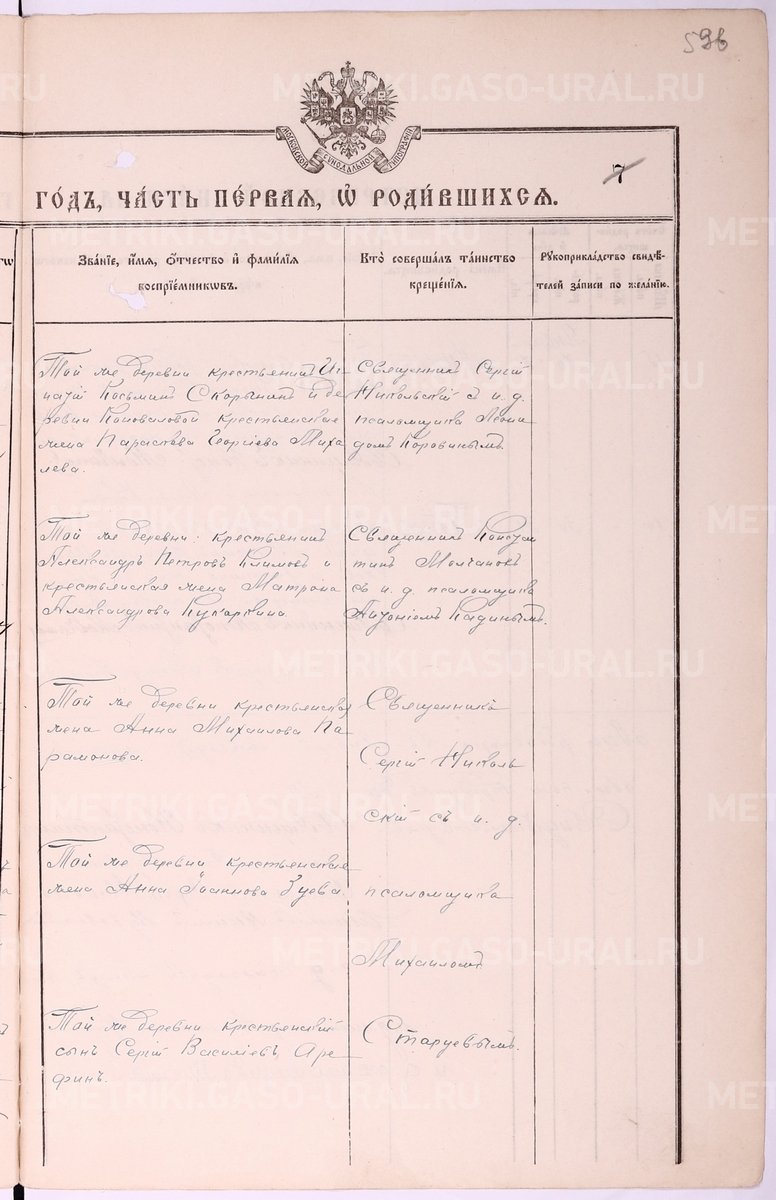 596
МОСКОВСКОЙ СѴНОДАЛЬНОЙ ТИПОГРАФІИ
7
ГО́ДЪ, ЧА́СТЬ ПЕ́РВАѦ, Ѡ҆ РОДИ́ВШИХСѦ.
Зва́нїе, и҆́мѧ, ѻ҆́тчество и҆ фами́лїѧ
воспрїе́мникѡвъ.
Кто̀ соверша́лъ та́инство
креще́нїѧ.
Рꙋкоприкла́дство свидѣ́-
телей за́писи по жела́нїю.
Той же деревни крестьянинъ Иг-
натій Косьминъ Скорынинъ и де
ревни Коноваловой крестьянская
жена Параскева Георгіева Миха
лева.
Священникъ Сергій
Никольскій съ и. д.
псаломщика Леони
домъ Коровинымъ.
Той же деревни крестьянинъ
Александръ Петровъ Климовъ и
крестьянская жена Матрона
Александрова Кукаркина.
Священникъ Констан
тинъ Молчановъ
съ и. д. псаломщика
Антоніемъ Кадинымъ.
Той же деревни крестьянская
жена Анна Михаилова Па-
рамонова.
Той же деревни крестьянская
жена Анна Іоаннова Зуева.
Той же деревни крестьянскій
сынъ Сергій Василіевъ Аре-
финъ.
Священника
Сергій Николь
скій съ и. д.
псаломщика
Михаиломъ
Старцевымъ.
METRIKI.GASO-URAL.RU